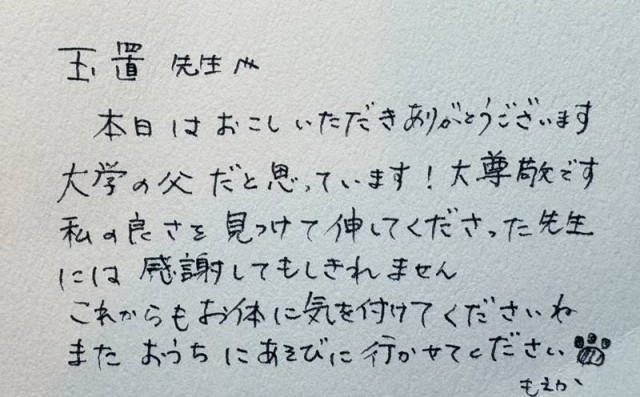 玉置 先生へ
本日はおこしいただきありがとうございます
大学の父だと思っています！大尊敬です
私の良さを見つけて伸してくださった先生
には感謝してもしきれません
これからもお体に気を付けてくださいね
また おうちにあそびに行かせてください
もえか